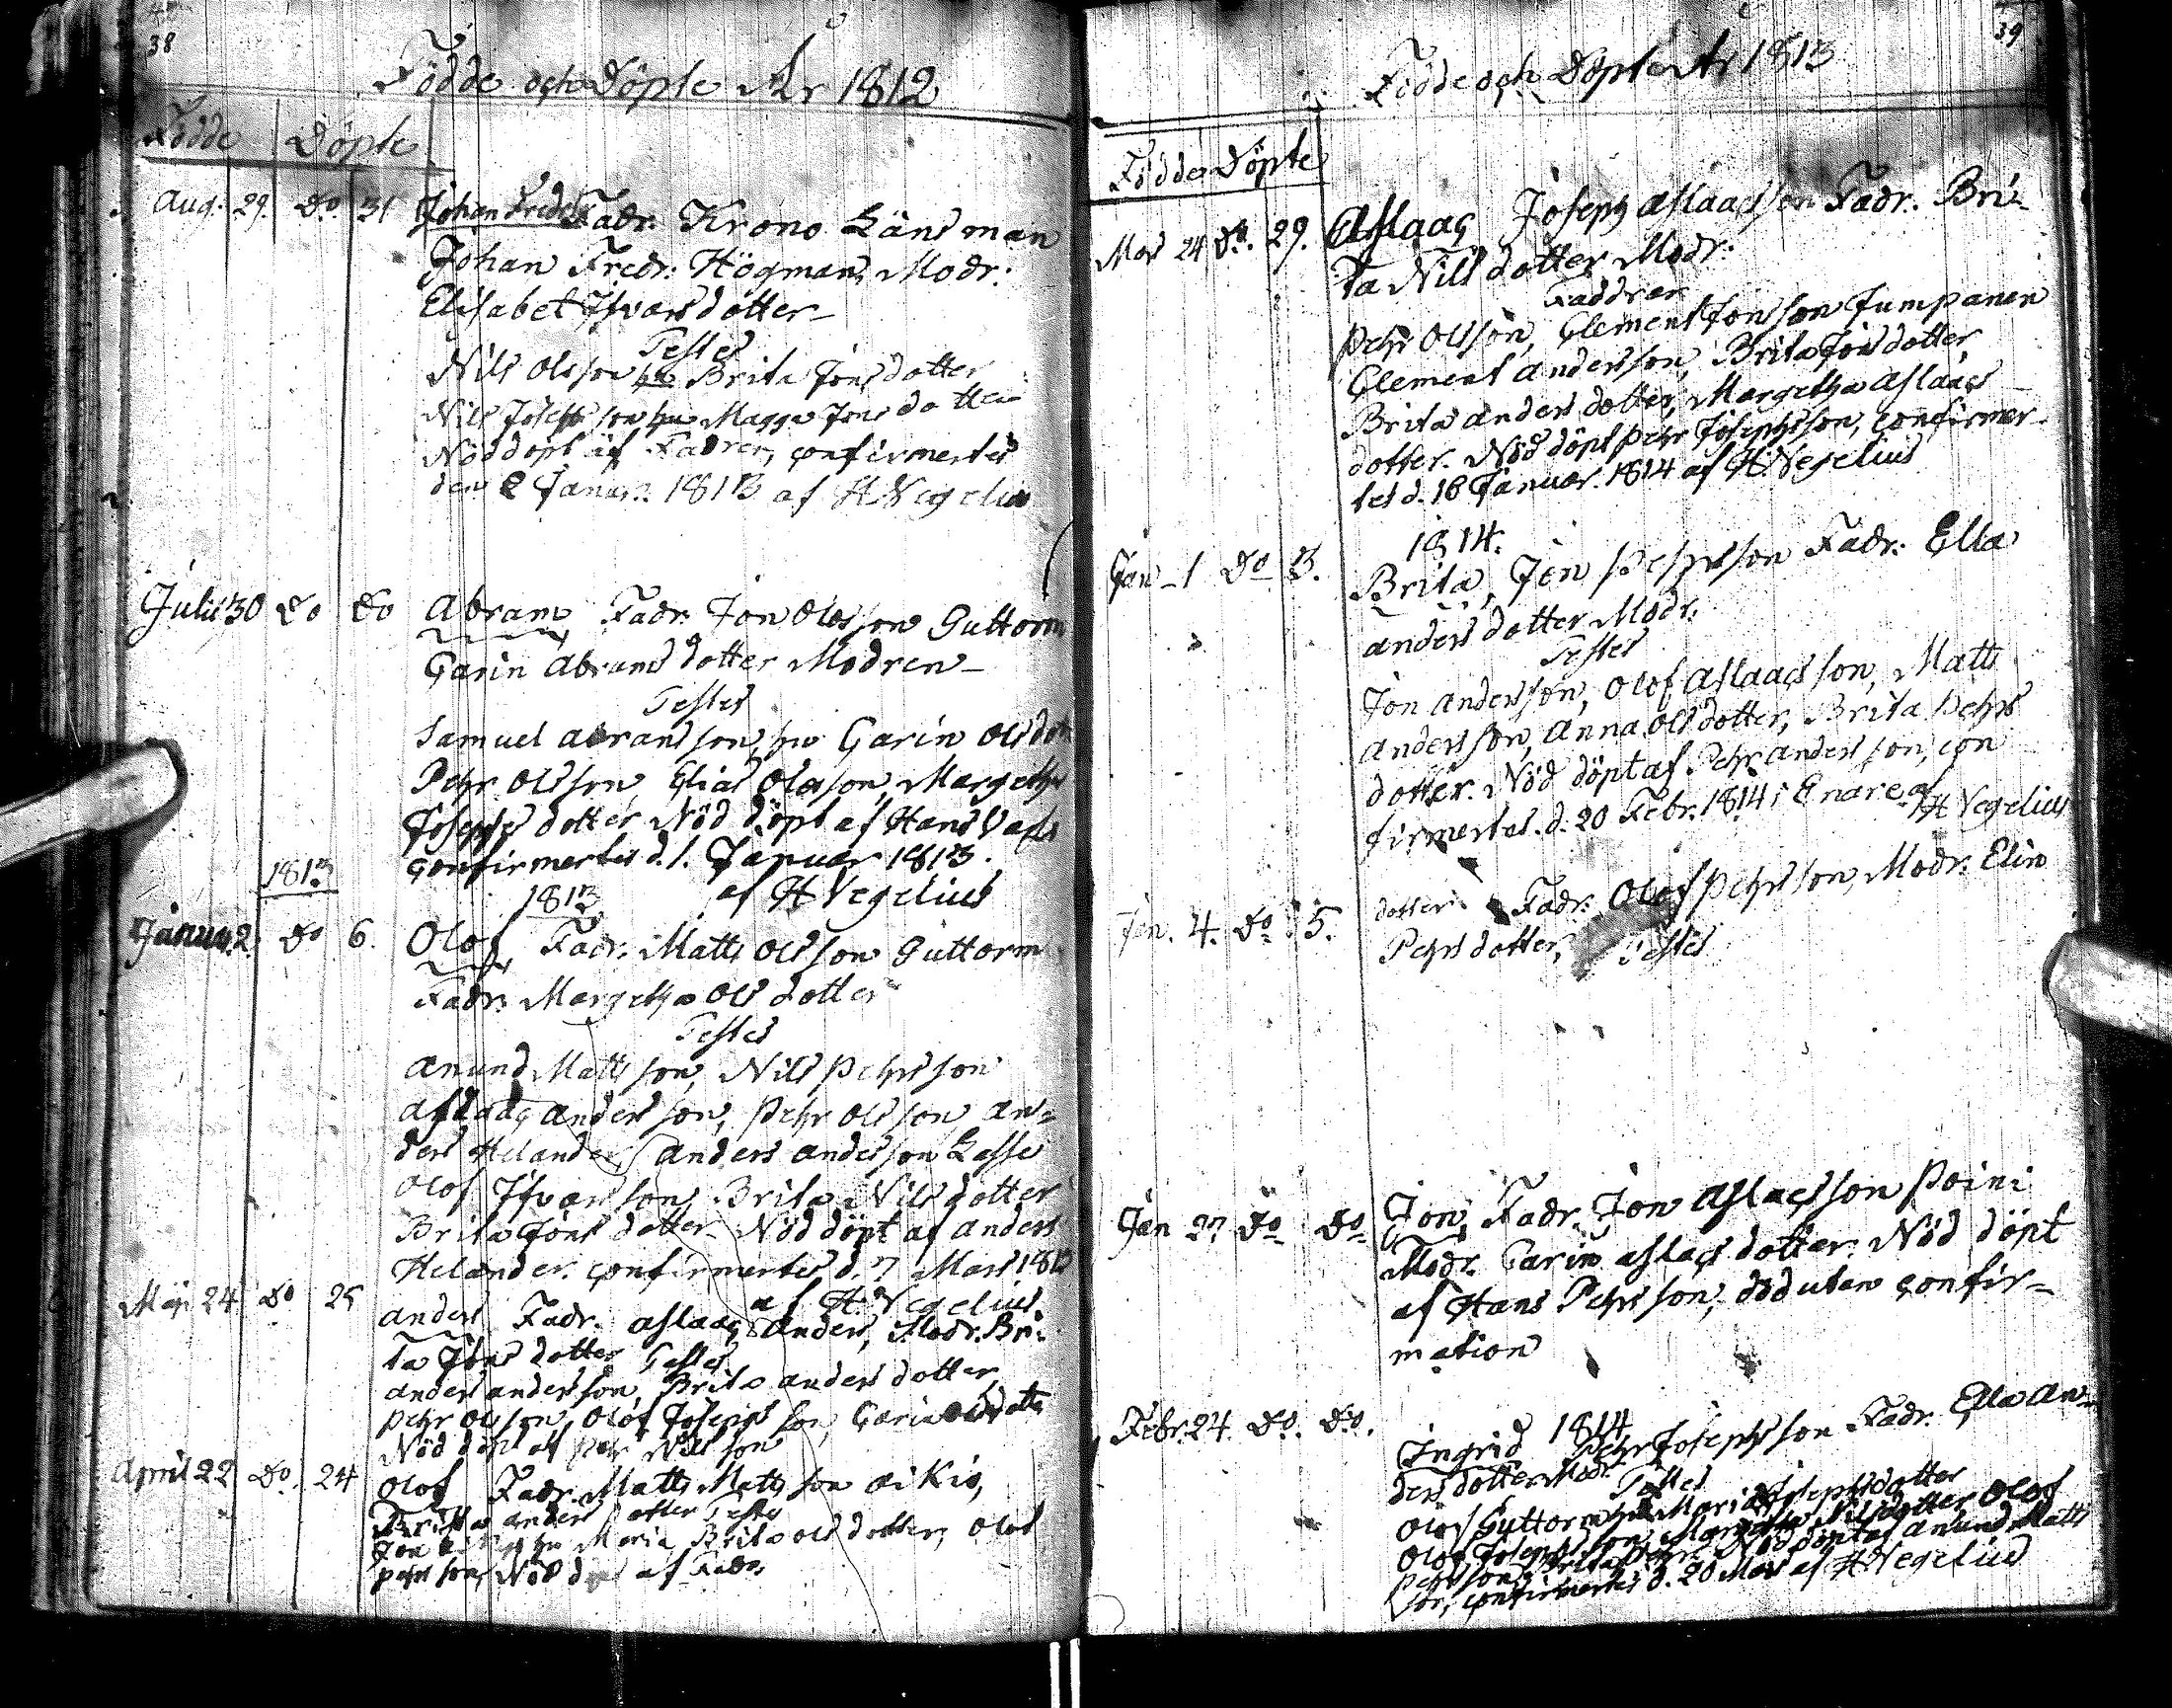 38
Födde och Döpte År 1812
Födde Döpte
Aug. 29. Do. 31 Johan Fredr. Fadr. Krono Länsman
Johan Fredr. Högman, Modr.
Elisabet Ifvarsdotter
Testes
Nils Olsson hu Brita Jonsdotter
Nils Josephsson hu Magga Jonsdotter
Nöddöpt af Fadren, confirmertes
den 2 Januar. 1813 af H Vegelius
Julii 30 Do Do Abram Fadr. Jon Olsson Guttorm
Carin Abramsdotter Modren
Testes
Samuel Abramsson, hu Carin Olsdott
Pehr Olsson, Elias Olsson, Margetha
Josephsdotter Nöd döpt af Hans
Confirmertes d. 1. Januar 1813.
af H Vegelius
1813
1813
Januar. 2. Do 6. Olof Fadr. Matts Olsson Guttorm
Fadr. Margetha Olsdotter
Testes
Anund Mattsson, Nils Pehrsson
Aslaac Andersson, Pehr Olsson, An=
ders Helander, Anders Andersson Lasse
Olof Ifvarsson, Brita Nilsdotter
Brita Jonsdotter Nöddöpt af Anders
Helander. confirmertes d. 7 Mars 1813
af H Vegelius.
24 Do 25 Anders Fadr. Aslaac Anders, Modr. Bri-
ta Jonsdotter Testes
Anders Andersson, Brita Andersdotter,
Pehr Olsson, Olof Josephsson, Carin Olsdotter
Nöd döpt af Pehr Nilsson
April 22 Do. 24 Olof Fadr. Matts Mattsson Aikio,
Anders dotter Testes
Jon hu Maria Brita Olsdotter, Olof
Pehrsson, Nöd döpt af Fadr.
39
Födde och Döpte År 1813
Födde Döpte
Mars 24 Do. 29. Aslaac Joseph Aslaacsson Fadr. Bri-
ta Nilsdotter Modr.
Faddrar
Pehr Olsson, Clement Jonsson Jumpanen
Clement Andersson, Brita Jonsdotter
Brita Andersdotter, Margetha Aslaacs
dotter. Nöd döpt Pehr Josephsson, confirmer-
tes d. 16 Januar. 1814 af H Vegelius
1814.
Jan 1 Do 3. Brita, Jon Pehrsson Fadr. Ella
Andersdotter Modr.
Testes
Jon Andersson, Olof Aslaacsson, Matts
Andersson, Anna Olsdotter, Brita Pehrs
dotter. Nöd döpt af Pehr Andersson, con
firmertes. d. 20 Febr. 1814 i Enare af
H Vegelius
Jan. 4. Do. 5. dotter Fadr. Olof Pehrsson, Modr. Elin
Pehrsdotter, Testes
Jan 27 Do Do Jon, Fadr. Jon Aslacsson Poini
Modr. Carin Aslacsdotter. Nöd döpt
af Hans Pehrsson, död utan confir-
mation
1814
Febr. 24. Do. Do. Ingrid Pehr Josephsson Fadr. Ella An-
dersdotter Modr. Testes
Olof Guttorm hu Maria Josephsdotter
Olof Josephsson Margetha Nilsdotter Olof
Pehrsson, Nöd döpt af Anund Matts
son, confirmertes d. 20 Mars af H Vegelius